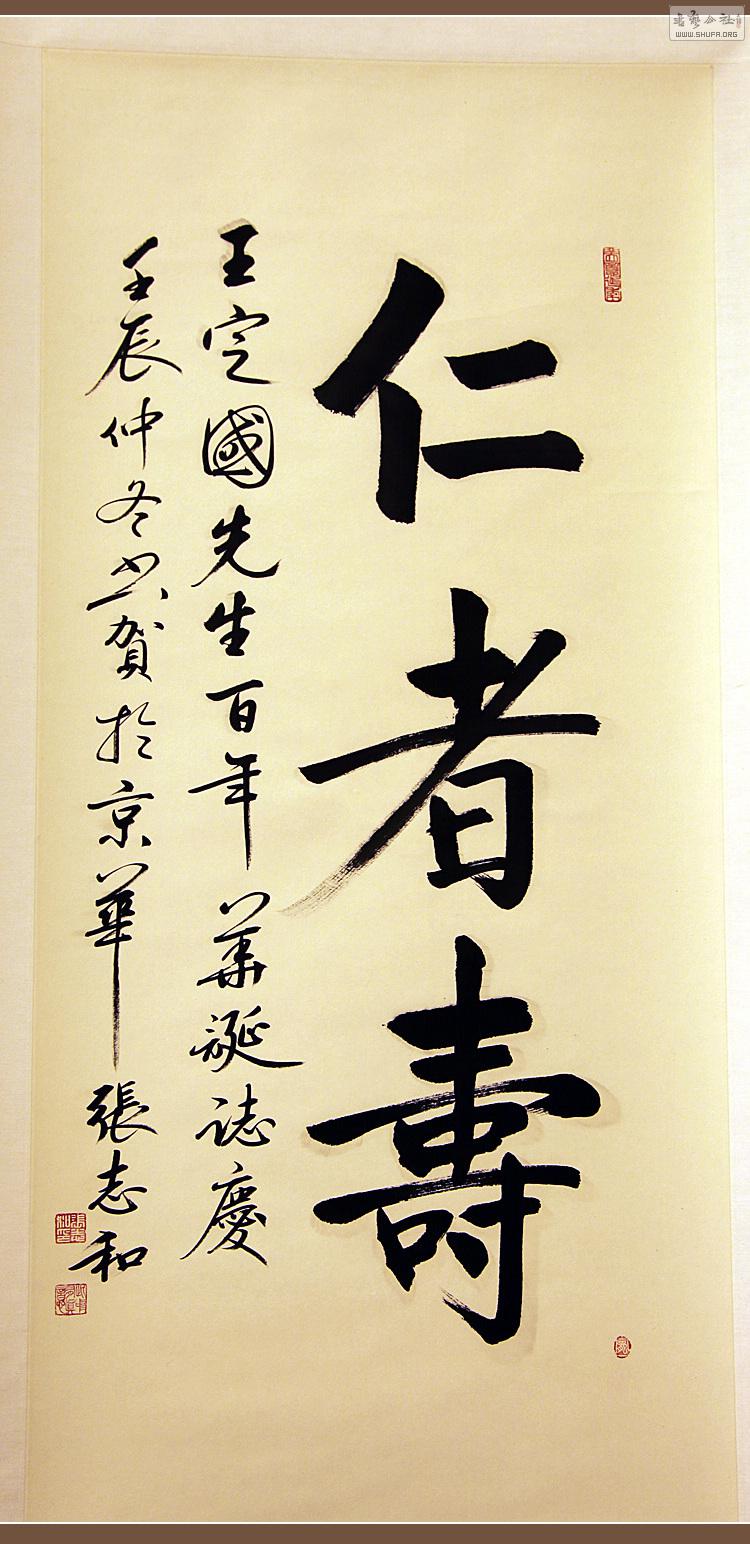 仁者壽
王定國先生百年華誕誌慶
壬辰仲冬共賀於京華張志和
书艺公社
WWW.SHUFA.ORG